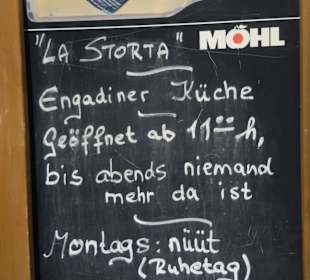 "LA STORTA" MÖHL
Engadiner Küche
Geöffnet ab 11⁰⁰ h,
bis abends niemand
mehr da ist
Montags: nüüt
(Ruhetag)